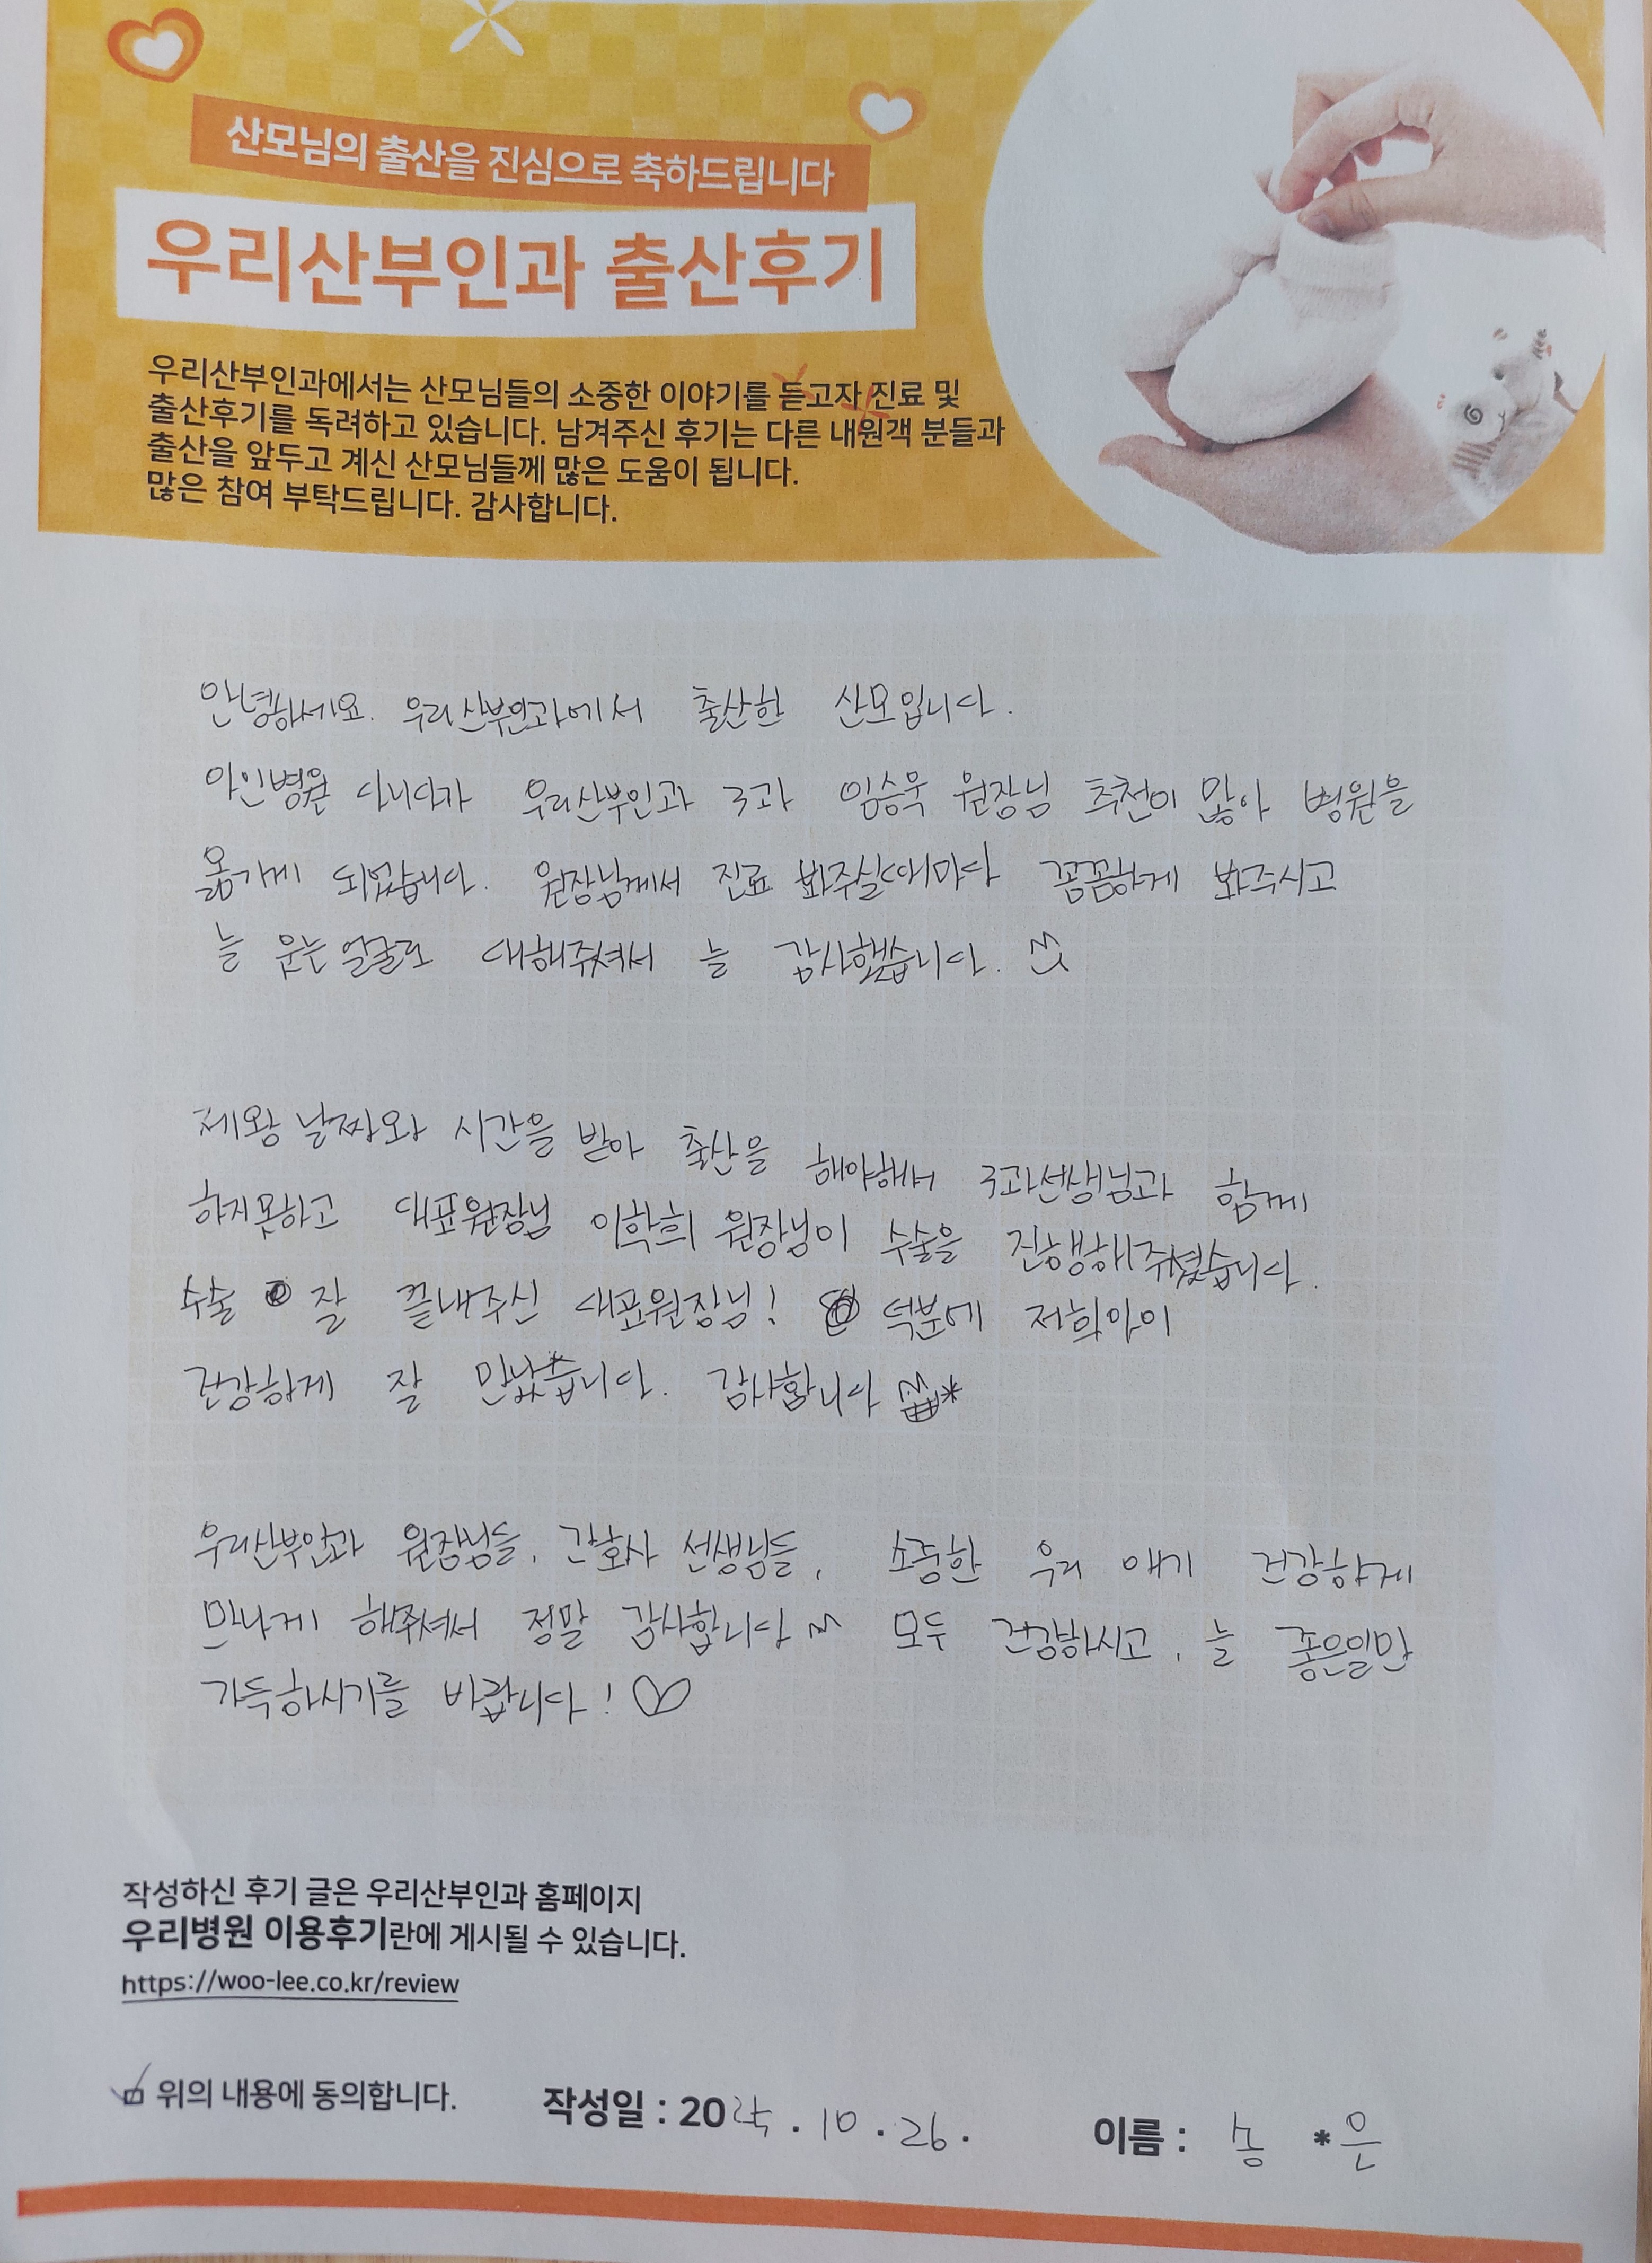 산모님의 출산을 진심으로 축하드립니다
우리산부인과 출산후기
우리산부인과에서는 산모님들의 소중한 이야기를 듣고자 진료 및
출산후기를 독려하고 있습니다. 남겨주신 후기는 다른 내원객 분들과
출산을 앞두고 계신 산모님들께 많은 도움이 됩니다.
많은 참여 부탁드립니다. 감사합니다.
안녕하세요. 우리산부인과에서 출산한 산모입니다.
아인병원 다니다가 우리산부인과 3과 임승욱 원장님 추천이 많아 병원을
옮기게 되었습니다. 원장님께서 진료 봐주실때마다 꼼꼼하게 봐주시고
늘 웃는 얼굴로 대해주셔서 늘 감사했습니다.
제왕 날짜와 시간을 받아 출산을 해야해서 3과선생님과 함께
하지못하고 대표원장님 이학희 원장님이 수술을 진행해주셨습니다.
수술 잘 끝내주신 대표원장님! 덕분에 저희아이
건강하게 잘 만났습니다. 감사합니다
우리산부인과 원장님들, 간호사 선생님들, 소중한 우리 애기 건강하게
만나게 해주셔서 정말 감사합니다 모두 건강하시고, 늘 좋은일만
가득하시기를 바랍니다!
작성하신 후기 글은 우리산부인과 홈페이지
우리병원 이용후기란에 게시될 수 있습니다.
https://woo-lee.co.kr/review
위의 내용에 동의합니다. 작성일 : 20 . 10 . 26. 이름 : * 은